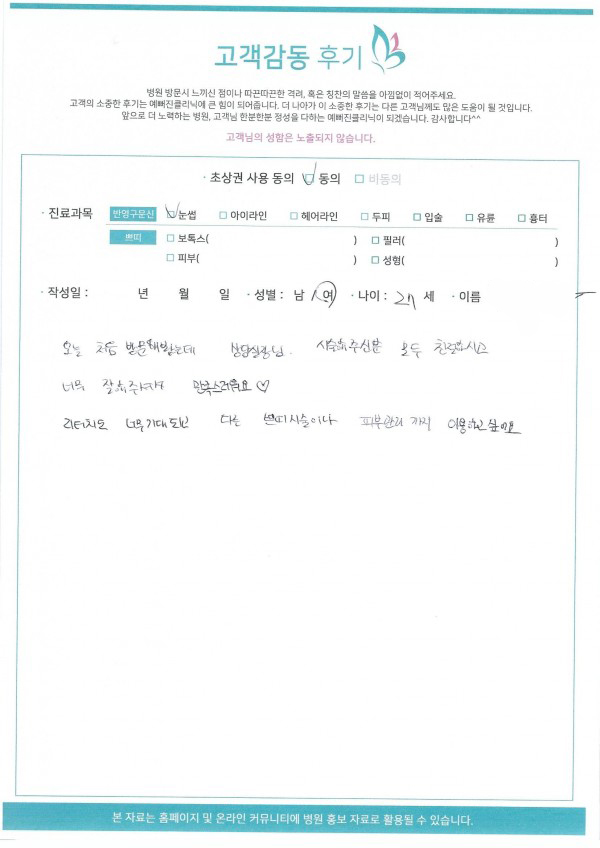 고객감동 후기
병원 방문시 느끼신 점이나 따끈따끈한 격려, 혹은 칭찬의 말씀을 아낌없이 적어주세요.
고객의 소중한 후기는 예뻐진클리닉에 큰 힘이 되어줍니다. 더 나아가 이 소중한 후기는 다른 고객님께도 많은 도움이 될 것입니다.
앞으로 더 노력하는 병원, 고객님 한분한분 정성을 다하는 예뻐진클리닉이 되겠습니다. 감사합니다^^
고객님의 성함은 노출되지 않습니다.
· 초상권 사용 동의 □ 동의 □ 비동의
· 진료과목 반영구문신 □ 눈썹 □ 아이라인 □ 헤어라인 □ 두피 □ 입술 □ 유륜 □ 흉터
쁘띠 □ 보톡스( ) □ 필러( )
□ 피부( ) □ 성형( )
· 작성일 : 년 월 일 · 성별 : 남 / 여 · 나이 : 세 · 이름
오늘 처음 방문해봤는데 상담실장님, 시술해주신분 모두 친절하시고
너무 잘해주셔서 만족스러워요 ♡
리터치도 너무 기대되고 다른 쁘띠시술이나 피부관리 까지 이용하고 싶어요
본 자료는 홈페이지 및 온라인 커뮤니티에 병원 홍보 자료로 활용될 수 있습니다.